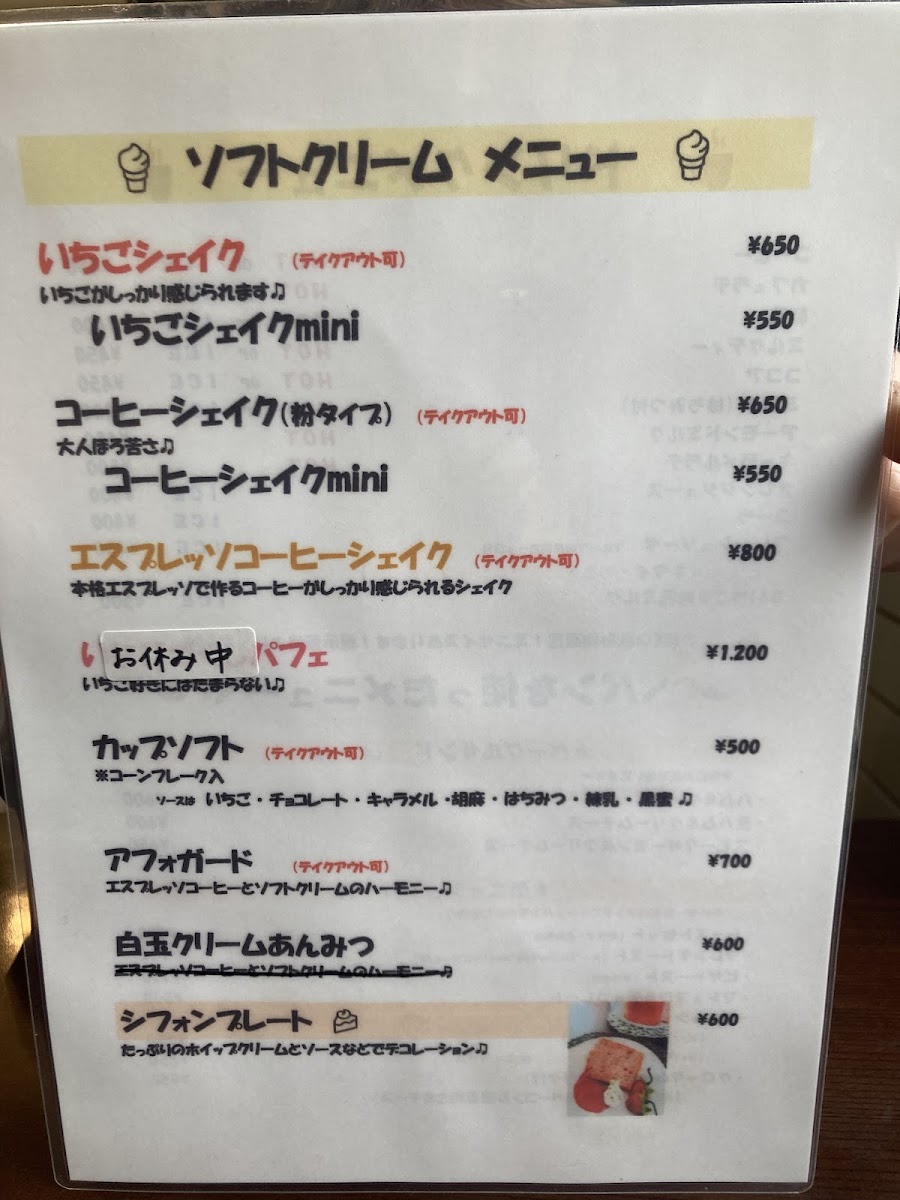 ソフトクリーム メニュー
いちごシェイク (テイクアウト可) ¥650
いちごがしっかり感じられます♫
いちごシェイクmini ¥550
コーヒーシェイク(粉タイプ) (テイクアウト可) ¥650
大人ほろ苦さ♫
コーヒーシェイクmini ¥550
エスプレッソコーヒーシェイク (テイクアウト可) ¥800
本格エスプレッソで作るコーヒーがしっかり感じられるシェイク
お休み中 パフェ ¥1.200
いちご好きにはたまらない♫
カップソフト (テイクアウト可) ¥500
※コーンフレーク入
ソースは いちご・チョコレート・キャラメル・胡麻・はちみつ・練乳・黒蜜 ♫
アフォガード (テイクアウト可) ¥700
エスプレッソコーヒーとソフトクリームのハーモニー♫
白玉クリームあんみつ ¥600
エスプレッソコーヒーとソフトクリームのハーモニー♫
シフォンプレート ¥600
たっぷりのホイップクリームとソースなどでデコレーション♫